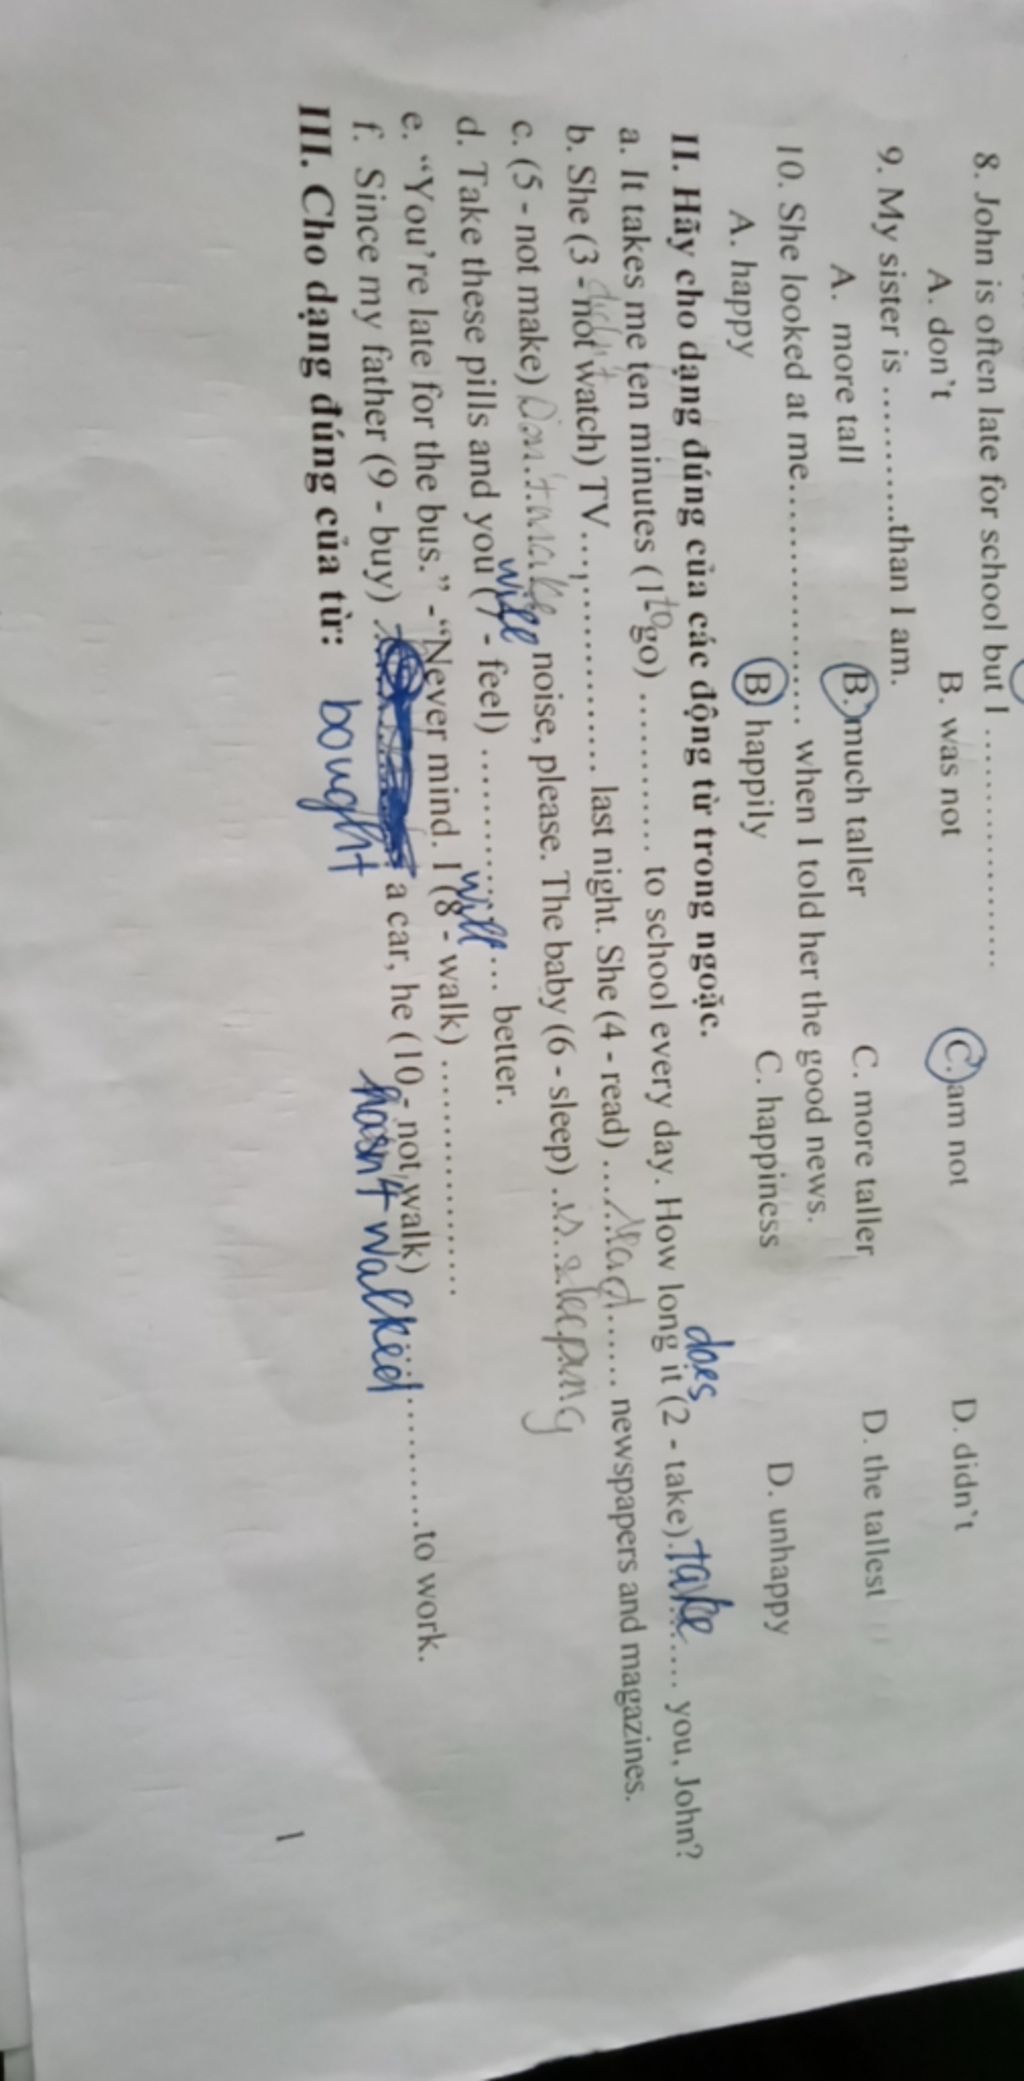 8. John is often late for school but I ........................
A. don't B. was not C. am not D. didn't
9. My sister is ............than I am.
A. more tall B. much taller C. more taller D. the tallest
10. She looked at me........................ when I told her the good news.
A. happy B. happily C. happiness D. unhappy
II. Hãy cho dạng đúng của các động từ trong ngoặc.
does
a. It takes me ten minutes (1 to go) ............... to school every day. How long it (2 - take) take ....... you, John?
b. She (3 - not didn't watch) TV .................. last night. She (4 - read) ....read...... newspapers and magazines.
c. (5 - not make) Don't make noise, please. The baby (6 - sleep) ..is sleeping
will
d. Take these pills and you (7 - feel) ................... better.
will
e. “You're late for the bus.” -“Never mind. I (8 - walk) ......................
f. Since my father (9 - buy) a car, he (10 - not walk) ............to work.
bought hasn't walked
III. Cho dạng đúng của từ:
1